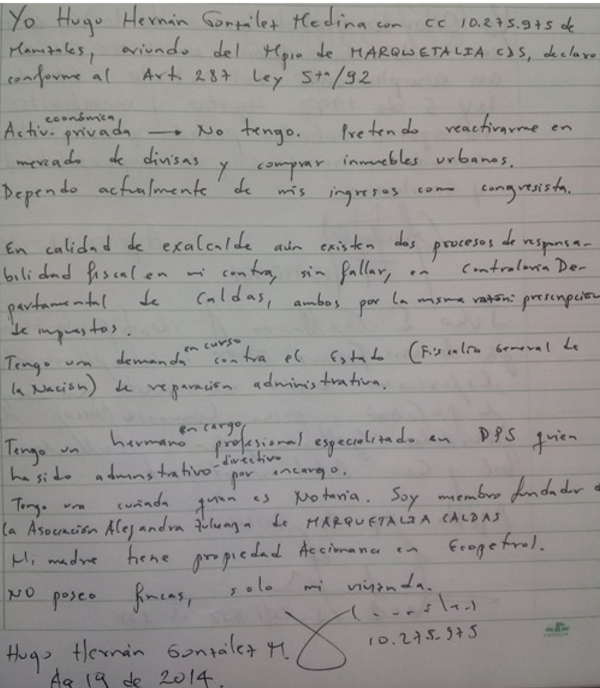 Yo Hugo Hernán González Medina con CC 10.275.975 de
Manizales, oriundo del Mpio de MARQUETALIA CDS, declaro
conforme al Art. 287 Ley 5ta/92
económica
Activ. privada → No tengo. Pretendo reactivarme en
mercado de divisas y comprar inmuebles urbanos.
Dependo actualmente de mis ingresos como congresista.
En calidad de exalcalde aún existen dos procesos de responsa-
bilidad fiscal en mi contra, sin fallar, en Contraloría De-
partamental de Caldas, ambos por la misma razón: prescripción
de impuestos.
en curso
Tengo una demanda contra el Estado (Fiscalía General de
la Nación) de reparación administrativa.
en cargo
Tengo un hermano profesional especializado en DPS quien
ha sido administrativo-directivo por encargo.
Tengo una cuñada quien es Notaria. Soy miembro fundador de
la Asociación Alejandra Zuluaga de MARQUETALIA CALDAS
Mi madre tiene propiedad Accionaria en Ecopetrol.
NO poseo fincas, solo mi vivienda.
10.275.975
Hugo Hernán González M.
Ag 19 de 2014.